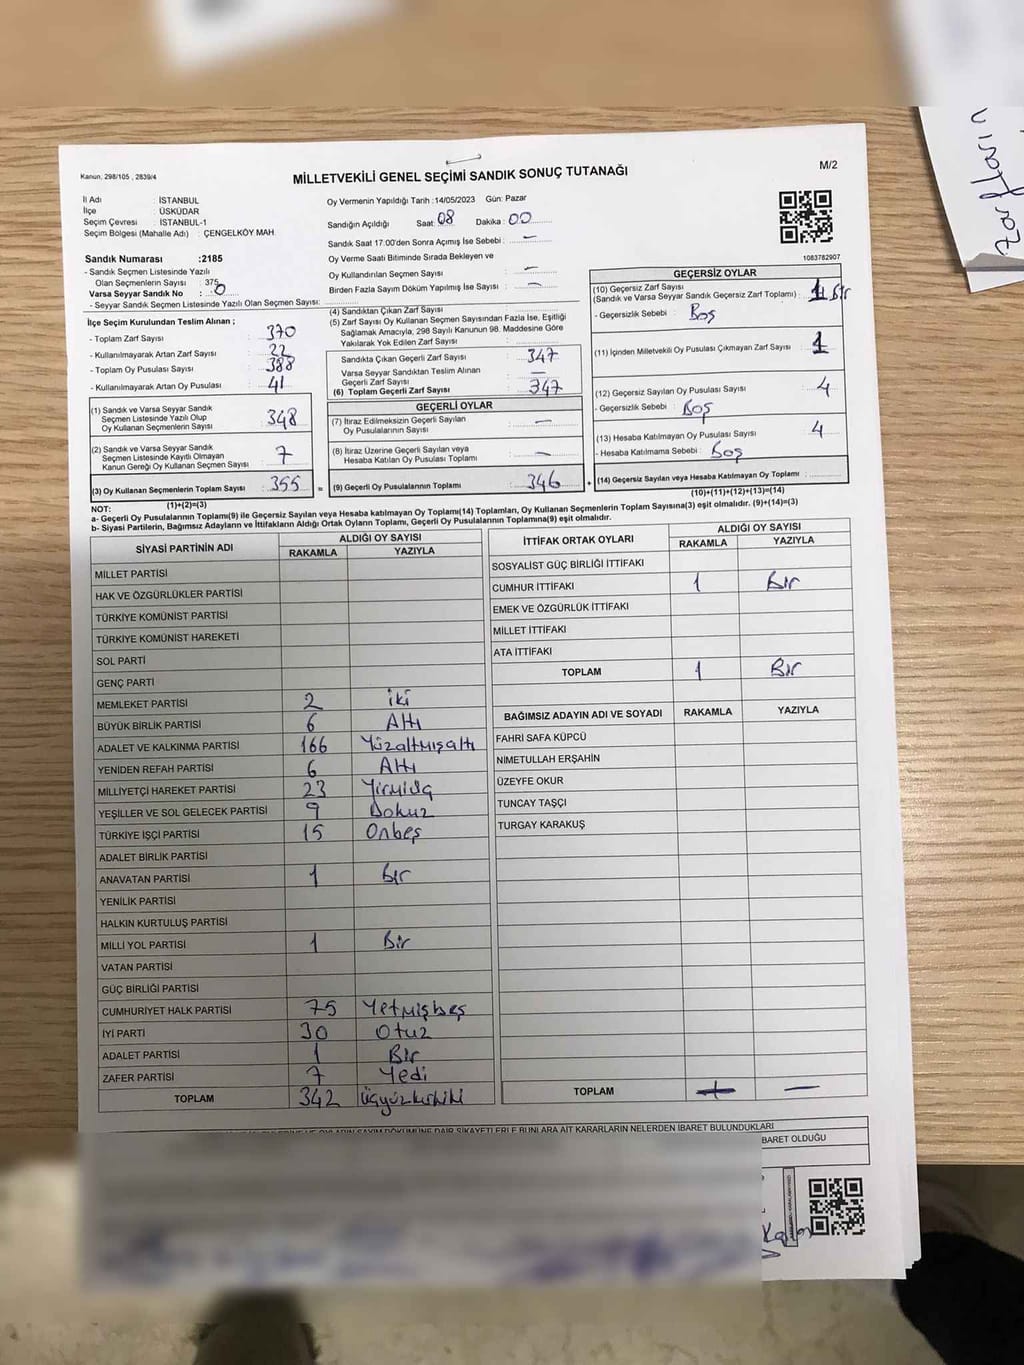 zarfların
Kanun, 298/105 , 2839/4
MİLLETVEKİLİ GENEL SEÇİMİ SANDIK SONUÇ TUTANAĞI
M/2
İl Adı : İSTANBUL
İlçe : ÜSKÜDAR
Seçim Çevresi : İSTANBUL-1
Seçim Bölgesi (Mahalle Adı) : ÇENGELKÖY MAH.
Sandık Numarası :2185
- Sandık Seçmen Listesinde Yazılı
Olan Seçmenlerin Sayısı : 375
Varsa Seyyar Sandık No : 0
- Seyyar Sandık Seçmen Listesinde Yazılı Olan Seçmen Sayısı:
Oy Vermenin Yapıldığı Tarih :14/05/2023 Gün: Pazar
Sandığın Açıldığı Saat: 08 Dakika : 00
Sandık Saat 17.00'den Sonra Açımış İse Sebebi : –
Oy Verme Saati Bitiminde Sırada Bekleyen ve
Oy Kullandırılan Seçmen Sayısı : –
Birden Fazla Sayım Döküm Yapılmış İse Sayısı : –
1083782907
İlçe Seçim Kurulundan Teslim Alınan ;
- Toplam Zarf Sayısı : 370
- Kullanılmayarak Artan Zarf Sayısı : 22
- Toplam Oy Pusulası Sayısı : 388
- Kullanılmayarak Artan Oy Pusulası : 41
(1) Sandık ve Varsa Seyyar Sandık
Seçmen Listesinde Yazılı Olup
Oy Kullanan Seçmenlerin Sayısı : 348
(2) Sandık ve Varsa Seyyar Sandık
Seçmen Listesinde Kayıtlı Olmayan
Kanun Gereği Oy Kullanan Seçmen Sayısı : 7
(3) Oy Kullanan Seçmenlerin Toplam Sayısı : 355 =
(1)+(2)=(3)
(4) Sandıktan Çıkan Zarf Sayısı :
(5) Zarf Sayısı Oy Kullanan Seçmen Sayısından Fazla İse, Eşitliği
Sağlamak Amacıyla, 298 Sayılı Kanunun 98. Maddesine Göre
Yakılarak Yok Edilen Zarf Sayısı :
Sandıkta Çıkan Geçerli Zarf Sayısı : 347
Varsa Seyyar Sandıktan Teslim Alınan
Geçerli Zarf Sayısı : –
(6) Toplam Geçerli Zarf Sayısı : 347
GEÇERLİ OYLAR
(7) İtiraz Edilmeksizin Geçerli Sayılan
Oy Pusulalarının Sayısı : –
(8) İtiraz Üzerine Geçerli Sayılan veya
Hesaba Katılan Oy Pusulası Toplamı : –
(9) Geçerli Oy Pusulalarının Toplamı : 346 +
GEÇERSİZ OYLAR
(10) Geçersiz Zarf Sayısı
(Sandık ve Varsa Seyyar Sandık Geçersiz Zarf Toplamı) : 1 Bir
- Geçersizlik Sebebi : Boş
(11) İçinden Milletvekili Oy Pusulası Çıkmayan Zarf Sayısı : 1
(12) Geçersiz Sayılan Oy Pusulası Sayısı : 4
- Geçersizlik Sebebi : Boş
(13) Hesaba Katılmayan Oy Pusulası Sayısı : 4
- Hesaba Katılmama Sebebi : Boş
(14) Geçersiz Sayılan veya Hesaba Katılmayan Oy Toplamı :
(10)+(11)+(12)+(13)=(14)
NOT:
a- Geçerli Oy Pusulalarının Toplamı(9) ile Geçersiz Sayılan veya Hesaba katılmayan Oy Toplamı(14) Toplamları, Oy Kullanan Seçmenlerin Toplam Sayısına(3) eşit olmalıdır. (9)+(14)=(3)
b- Siyasi Partilerin, Bağımsız Adayların ve İttifakların Aldığı Ortak Oyların Toplamı, Geçerli Oy Pusulalarının Toplamına(9) eşit olmalıdır.
SİYASİ PARTİNİN ADI ALDIĞI OY SAYISI
RAKAMLA YAZIYLA
MİLLET PARTİSİ
HAK VE ÖZGÜRLÜKLER PARTİSİ
TÜRKİYE KOMÜNİST PARTİSİ
TÜRKİYE KOMÜNİST HAREKETİ
SOL PARTİ
GENÇ PARTİ
MEMLEKET PARTİSİ 2 iki
BÜYÜK BİRLİK PARTİSİ 6 Altı
ADALET VE KALKINMA PARTİSİ 166 Yüzaltmışaltı
YENİDEN REFAH PARTİSİ 6 Altı
MİLLİYETÇİ HAREKET PARTİSİ 23 Yirmiüç
YEŞİLLER VE SOL GELECEK PARTİSİ 9 Dokuz
TÜRKİYE İŞÇİ PARTİSİ 15 Onbeş
ADALET BİRLİK PARTİSİ
ANAVATAN PARTİSİ 1 Bir
YENİLİK PARTİSİ
HALKIN KURTULUŞ PARTİSİ
MİLLİ YOL PARTİSİ 1 Bir
VATAN PARTİSİ
GÜÇ BİRLİĞİ PARTİSİ
CUMHURİYET HALK PARTİSİ 75 Yetmişbeş
İYİ PARTİ 30 Otuz
ADALET PARTİSİ 1 Bir
ZAFER PARTİSİ 7 Yedi
TOPLAM 342 Üçyüzkırkiki
İTTİFAK ORTAK OYLARI ALDIĞI OY SAYISI
RAKAMLA YAZIYLA
SOSYALİST GÜÇ BİRLİĞİ İTTİFAKI
CUMHUR İTTİFAKI 1 Bir
EMEK VE ÖZGÜRLÜK İTTİFAKI
MİLLET İTTİFAKI
ATA İTTİFAKI
TOPLAM 1 Bir
BAĞIMSIZ ADAYIN ADI VE SOYADI RAKAMLA YAZIYLA
FAHRİ SAFA KÜPCÜ
NİMETULLAH ERŞAHİN
ÜZEYFE OKUR
TUNCAY TAŞÇI
TURGAY KARAKUŞ
TOPLAM – –
OYLARIN SAYIM DÖKÜMÜNE DAİR ŞİKAYETLERLE BUNLARA AİT KARARLARIN NELERDEN İBARET BULUNDUKLARI
BARET OLDUĞU